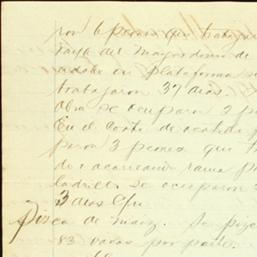 por 6 peones que trabaja
raya del mayordomo de
adobe en plataforma s
trabajaron 37 dias.
Obra se ocuparon 3 p
En el corte de ocotillo p
paron 3 peones que t
do i acarreando rama p
ladrillo se ocuparon
3 dias c/u
ca de maiz. Se
83 varas por parte.